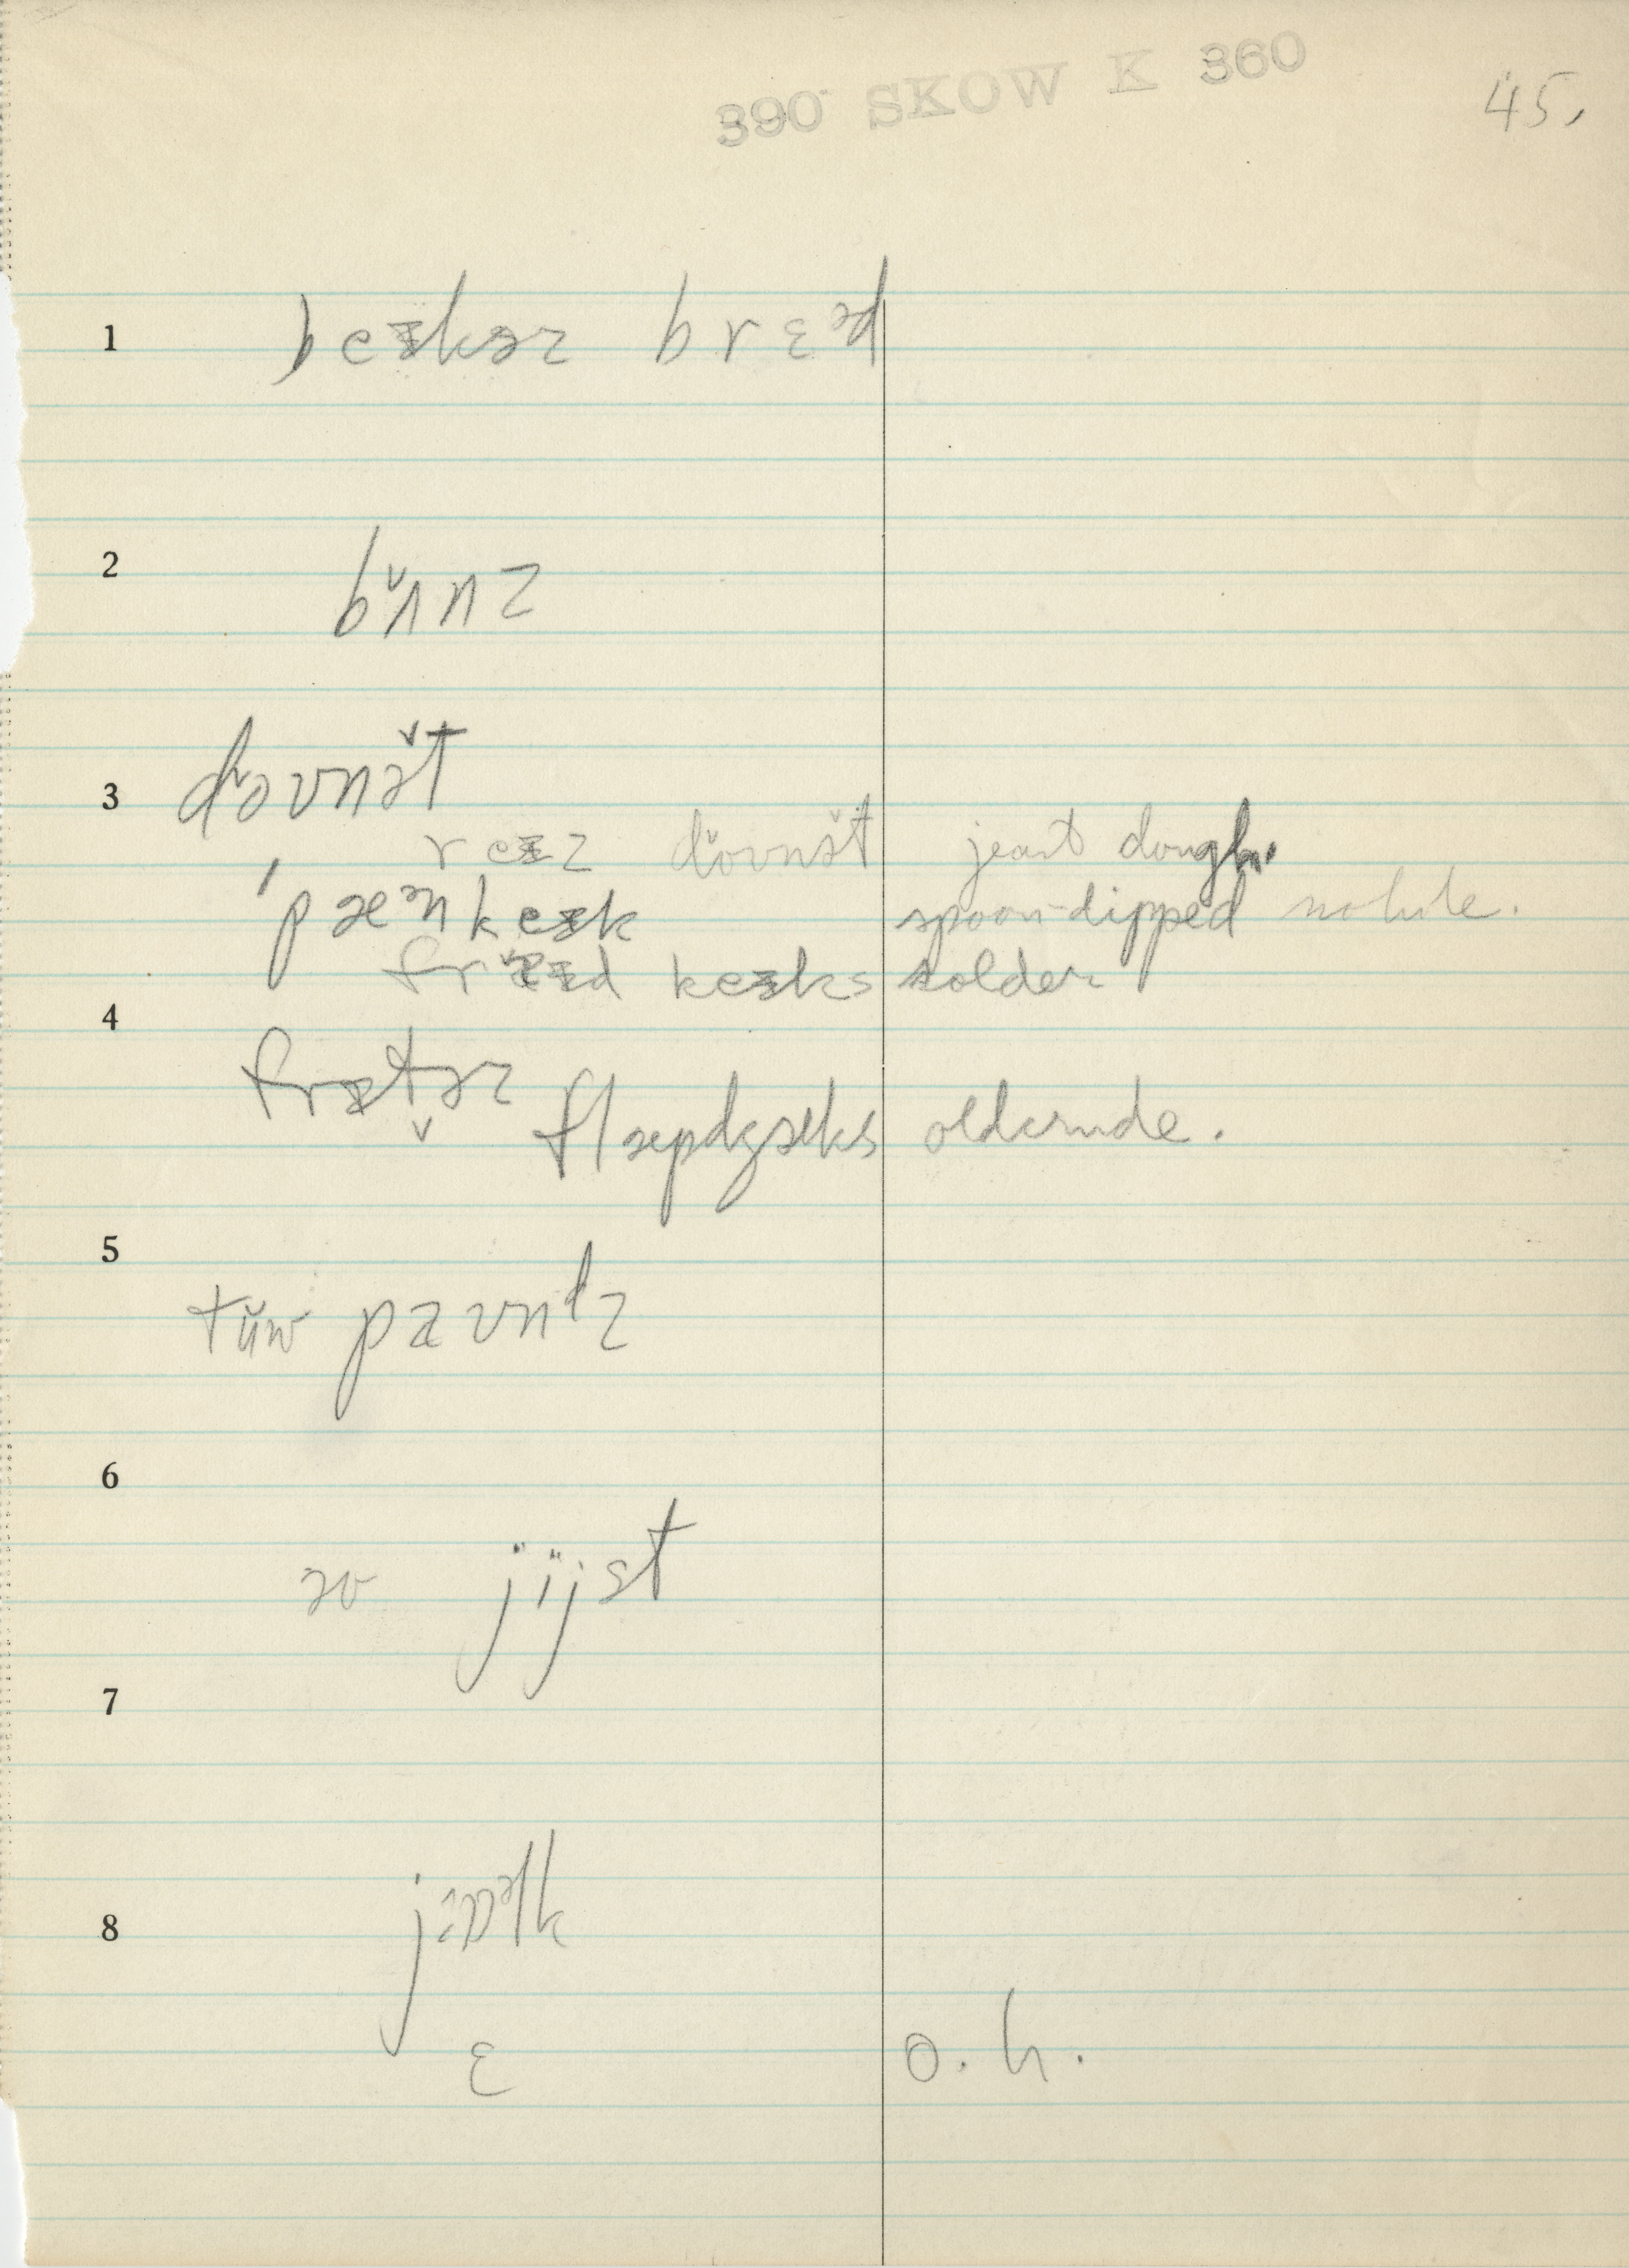 390 SKOW K 360
45.
1 beᵻkəz brɛᵊd
2 bʌ̆nz
3 dŏʊnət
reᵻz dŏʊnət yeast dough.
'pæᵊnkeᵻk spoon-dipped no hole.
fraᵻd keᵻks older
4
frᵻtəz
flæpdʒæks older mde.
5
tŭw paʊndz
6
əv jïjst
7
8 jɛᵊlk
ɛ o. h.